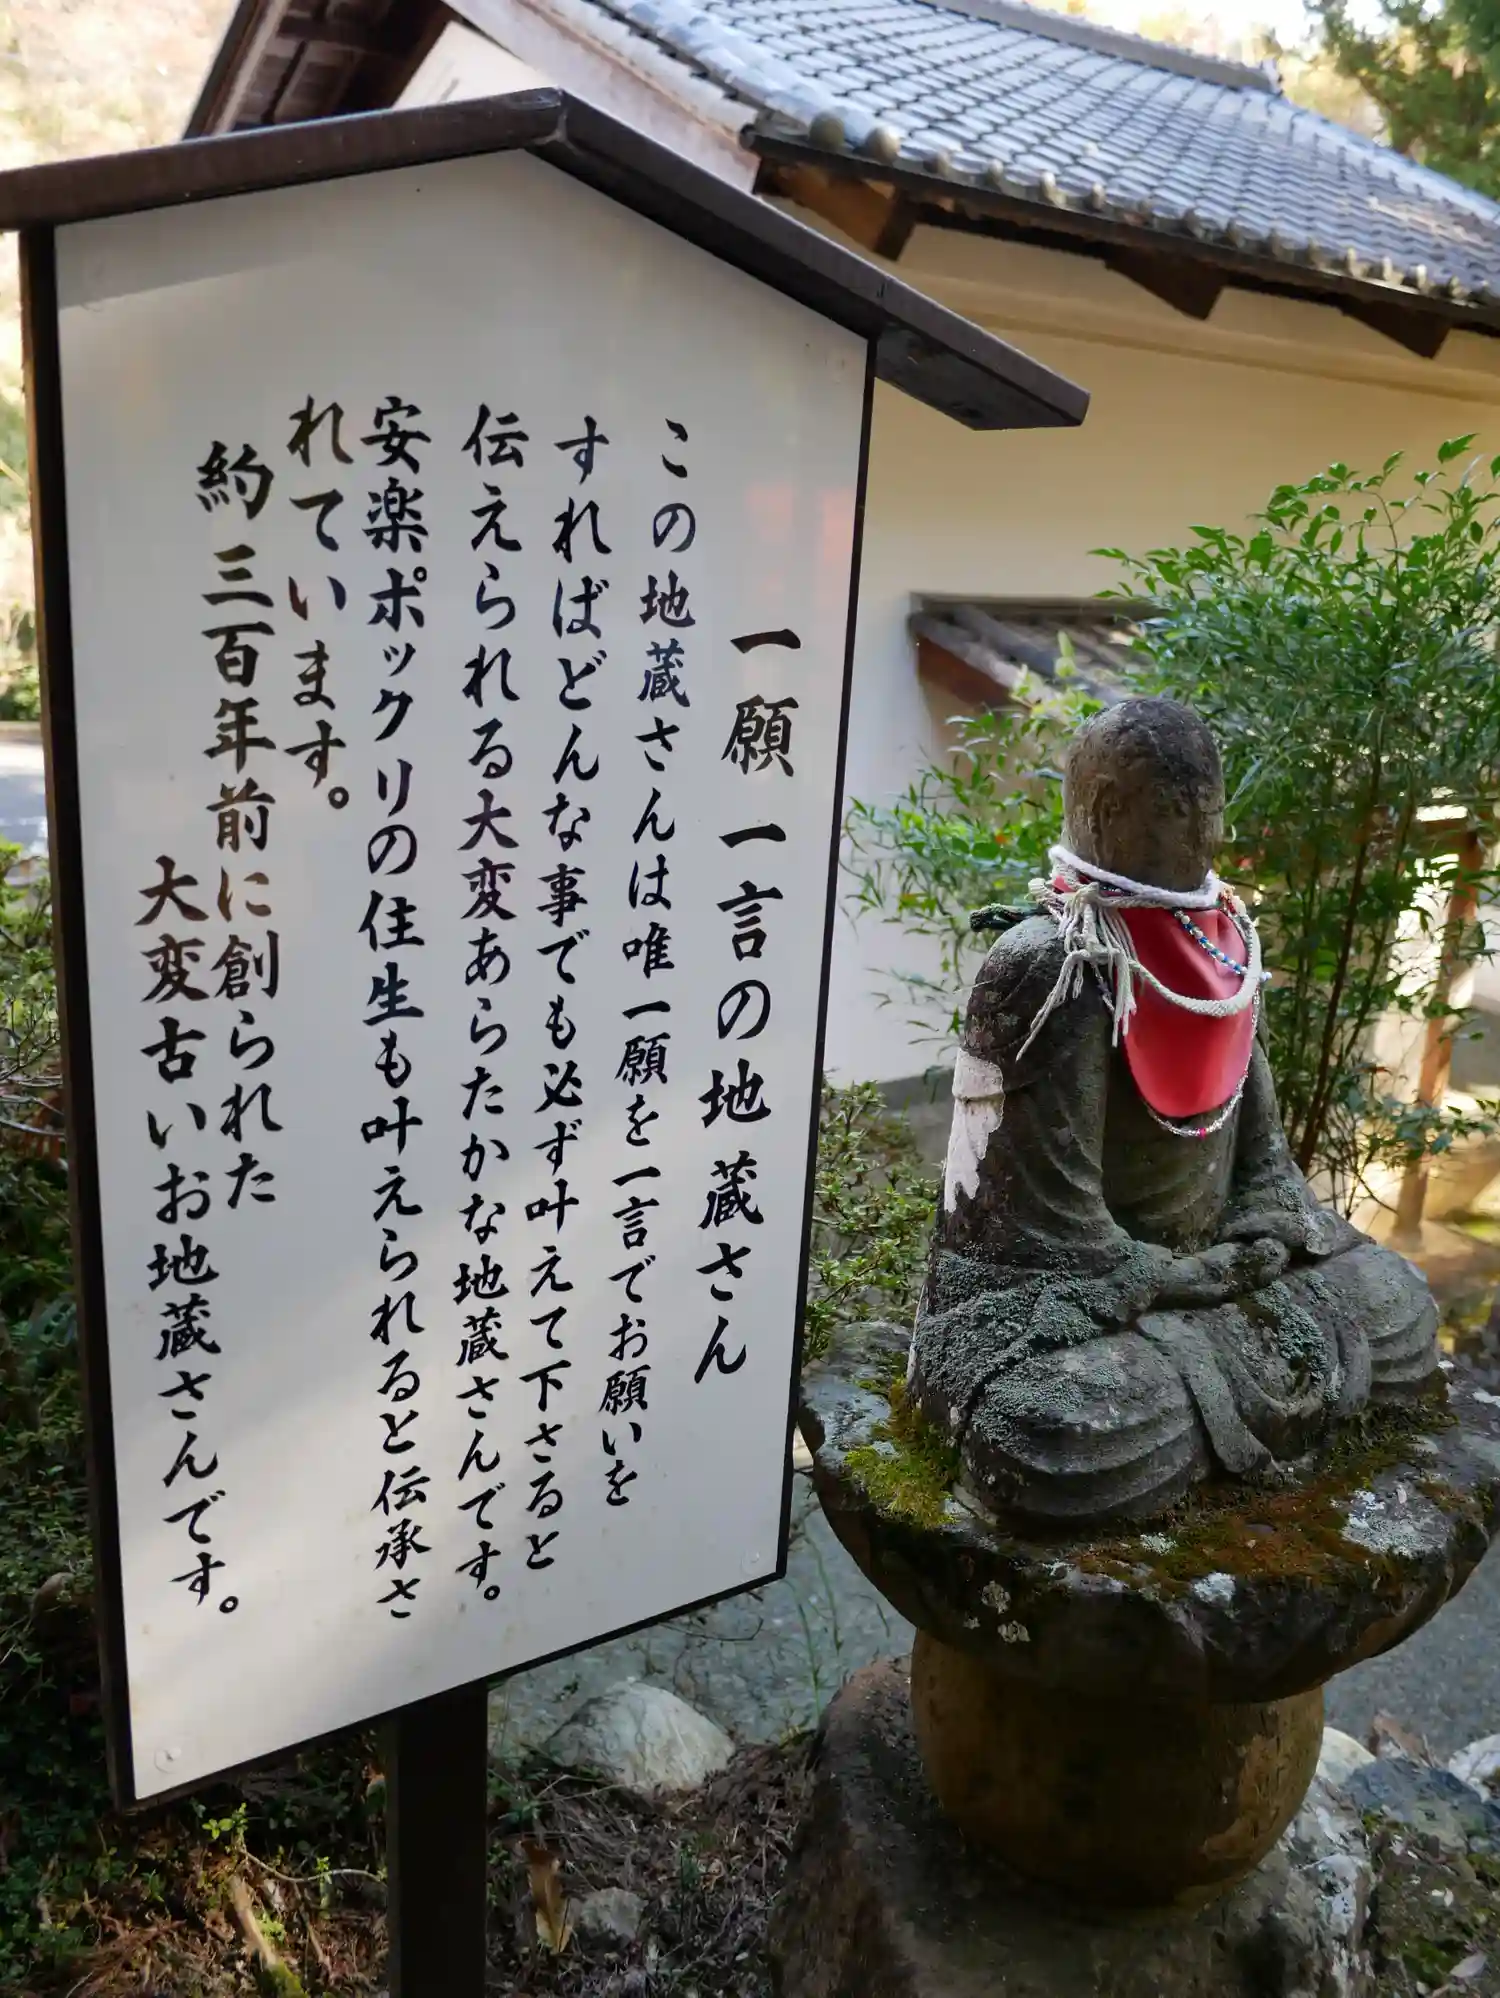 一願一言の地蔵さん
この地蔵さんは唯一願を一言でお願いを
すればどんな事でも必ず叶えて下さると
伝えられる大変あらたかな地蔵さんです。
安楽ポックリの住生も叶えられると伝承さ
れています。
約三百年前に創られた
大変古いお地蔵さんです。